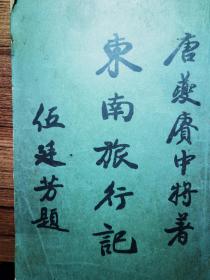 唐夔赓中将著
東南旅行記
伍廷芳題